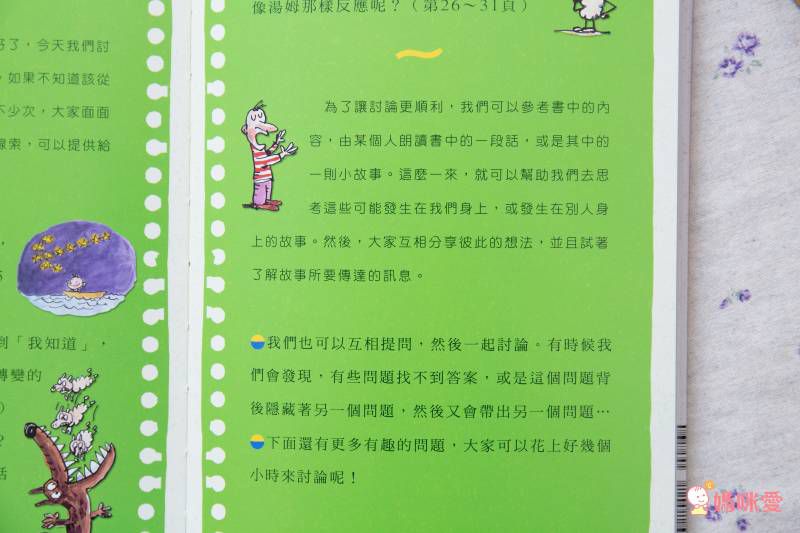 巧了，今天我們討
如果不知道該從
不少次，大家面面
線索，可以提供給
到「我知道」，
轉變的
）
？
話
像湯姆那樣反應呢？（第26～31頁）
為了讓討論更順利，我們可以參考書中的內
容，由某個人朗讀書中的一段話，或是其中的
一則小故事。這麼一來，就可以幫助我們去思
考這些可能發生在我們身上，或發生在別人身
上的故事。然後，大家互相分享彼此的想法，並且試著
了解故事所要傳達的訊息。
我們也可以互相提問，然後一起討論。有時候我
們會發現，有些問題找不到答案，或是這個問題背
後隱藏著另一個問題，然後又會帶出另一個問題…
下面還有更多有趣的問題，大家可以花上好幾個
小時來討論呢！
媽咪愛